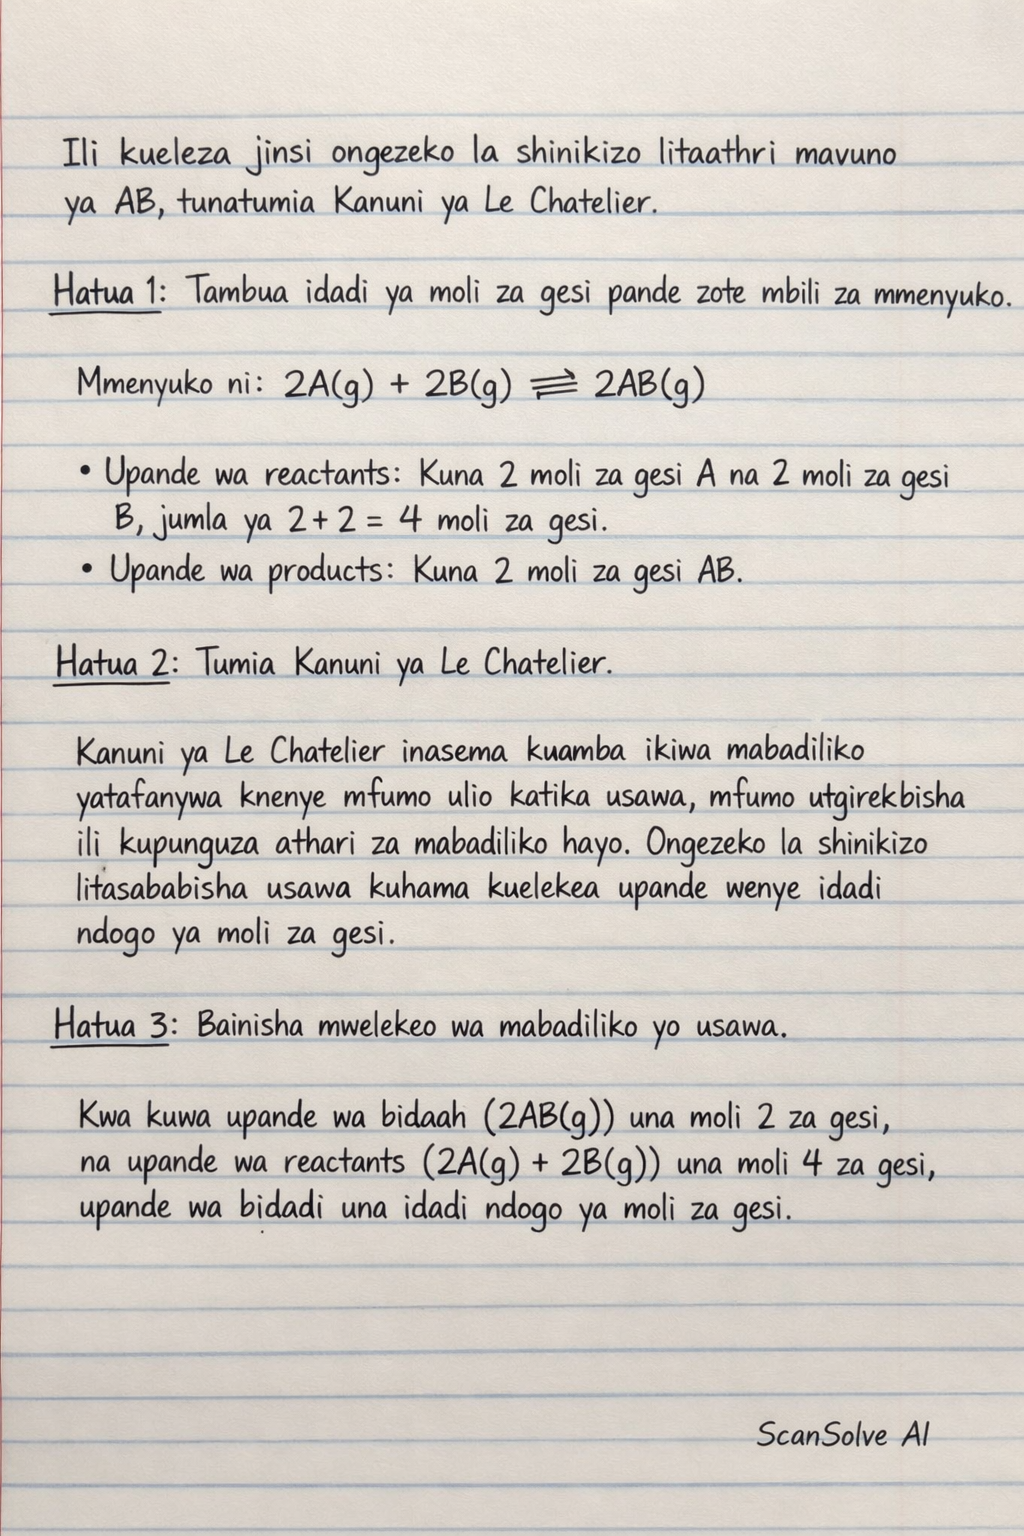 Ili kueleza jinsi ongezeko la shinikizo litaathri mavuno
ya AB, tunatumia Kanuni ya Le Chatelier.
Hatua 1: Tambua idadi ya moli za gesi pande zote mbili za mmenyuko.
Mmenyuko ni: 2A(g) + 2B(g) ⇌ 2AB(g)
• Upande wa reactants: Kuna 2 moli za gesi A na 2 moli za gesi
B, jumla ya 2+2 = 4 moli za gesi.
• Upande wa products: Kuna 2 moli za gesi AB.
Hatua 2: Tumia Kanuni ya Le Chatelier.
Kanuni ya Le Chatelier inasema kuamba ikiwa mabadiliko
yatafanywa knenye mfumo ulio katika usawa, mfumo utgirekbisha
ili kupunguza athari za mabadiliko hayo. Ongezeko la shinikizo
litasababisha usawa kuhama kuelekea upande wenye idadi
ndogo ya moli za gesi.
Hatua 3: Bainisha mwelekeo wa mabadiliko yo usawa.
Kwa kuwa upande wa bidaah (2AB(g)) una moli 2 za gesi,
na upande wa reactants (2A(g) + 2B(g)) una moli 4 za gesi,
upande wa bidadi una idadi ndogo ya moli za gesi.
ScanSolve AI